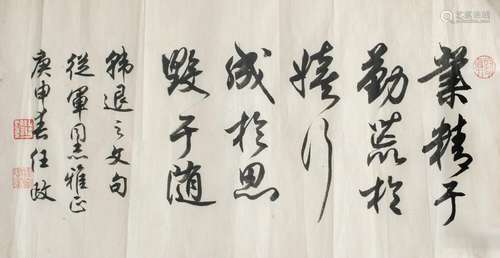 業精于
勤荒於
嬉行
成於思
毀于随
韓退之文句
從軍同志雅正
庚申春任政